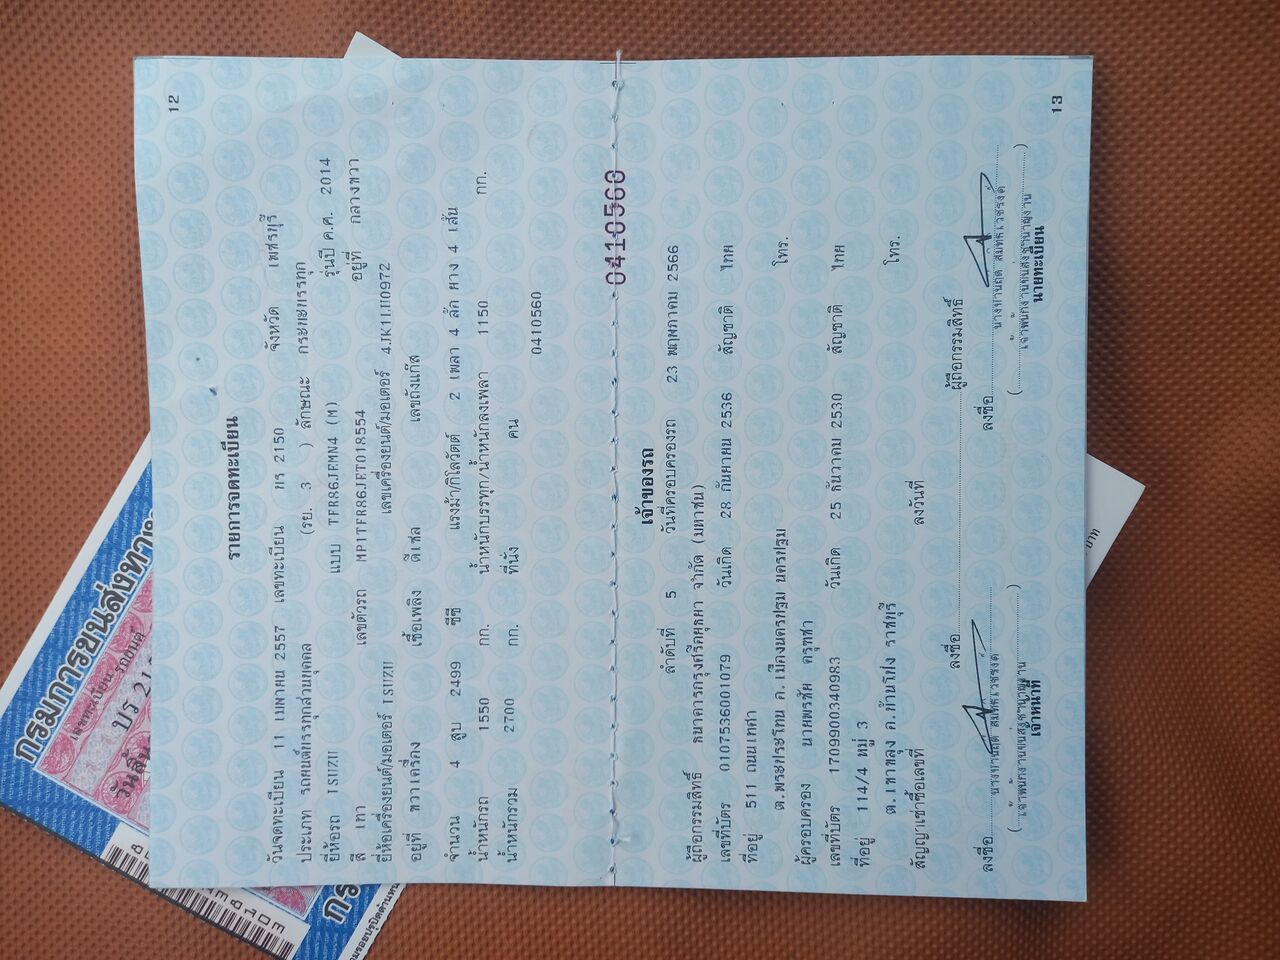 12
รายการจดทะเบียน
วันจดทะเบียน 11 เมษายน 2557 เลขทะเบียน บร 2150 จังหวัด เพชรบุรี
ประเภท รถยนต์บรรทุกส่วนบุคคล (รย. 3 ) ลักษณะ กระบะบรรทุก
ยี่ห้อรถ ISUZU แบบ TFR86JEMN4 (M) รุ่นปี ค.ศ. 2014
สี เทา เลขตัวรถ MP1TFR86JET018554 อยู่ที่ กลางขวา
ยี่ห้อเครื่องยนต์/มอเตอร์ ISUZU เลขเครื่องยนต์/มอเตอร์ 4JK1LU0972
อยู่ที่ ขวาเครื่อง เชื้อเพลิง ดีเซล เลขถังแก๊ส
จำนวน 4 สูบ 2499 ซีซี แรงม้า/กิโลวัตต์ 2 เพลา 4 ล้อ ยาง 4 เส้น
น้ำหนักรถ 1550 กก. น้ำหนักบรรทุก/น้ำหนักลงเพลา 1150 กก.
น้ำหนักรวม 2700 กก. ที่นั่ง คน
0410560
0410560
เจ้าของรถ
ลำดับที่ 5 วันที่ครอบครองรถ 23 พฤษภาคม 2566
ผู้ถือกรรมสิทธิ์ ธนาคารกรุงศรีอยุธยา จำกัด (มหาชน)
เลขที่บัตร 0107536001079 วันเกิด 28 กันยายน 2536 สัญชาติ ไทย
ที่อยู่ 511 ถนนเทศา โทร.
ต.พระประโทน อ.เมืองนครปฐม นครปฐม
ผู้ครอบครอง นายพรชัย ครุฑชา
เลขที่บัตร 1709900340983 วันเกิด 25 ธันวาคม 2530 สัญชาติ ไทย
ที่อยู่ 114/4 หมู่ 3 โทร.
ต.เขาขลุง อ.บ้านโป่ง ราชบุรี
สัญญาเช่าซื้อเลขที่ ลงวันที่
ลงชื่อ ผู้ถือกรรมสิทธิ์
ลงชื่อ ลงชื่อ
เจ้าหน้าที่ นายทะเบียน
13
กรมการขนส่งทางบก
เลขทะเบียนรถยนต์
วันสิ้น
บาท